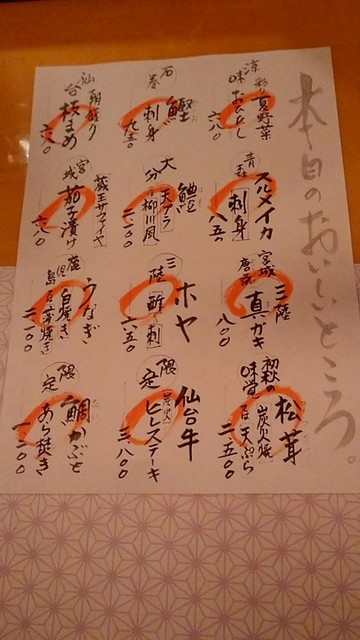 本日のおいしいところ。
涼味
彩り夏野菜
おひたし
六八〇
石巻
鰹
刺身
九五〇
仙台
朝盛り
枝まめ
六八〇
青森
スルメイカ
刺身
八五〇
大分
鱧
天プラ
柳川風
二二〇〇
宮城
蔵王サファイヤ
茄子漬け
六八〇
宮城
三陸
真ガキ
八〇〇
三陸
ホヤ
酢
刺
六五〇
鹿児島
うなぎ
白焼き
蒲焼き
二二〇〇
初秋の味覚
松茸
炭火焼
天ぷら
二、五〇〇
限定
仙台牛
炭火
ヒレステーキ
三、八〇〇
限定
鯛かぶと
あら焚き
一、二〇〇